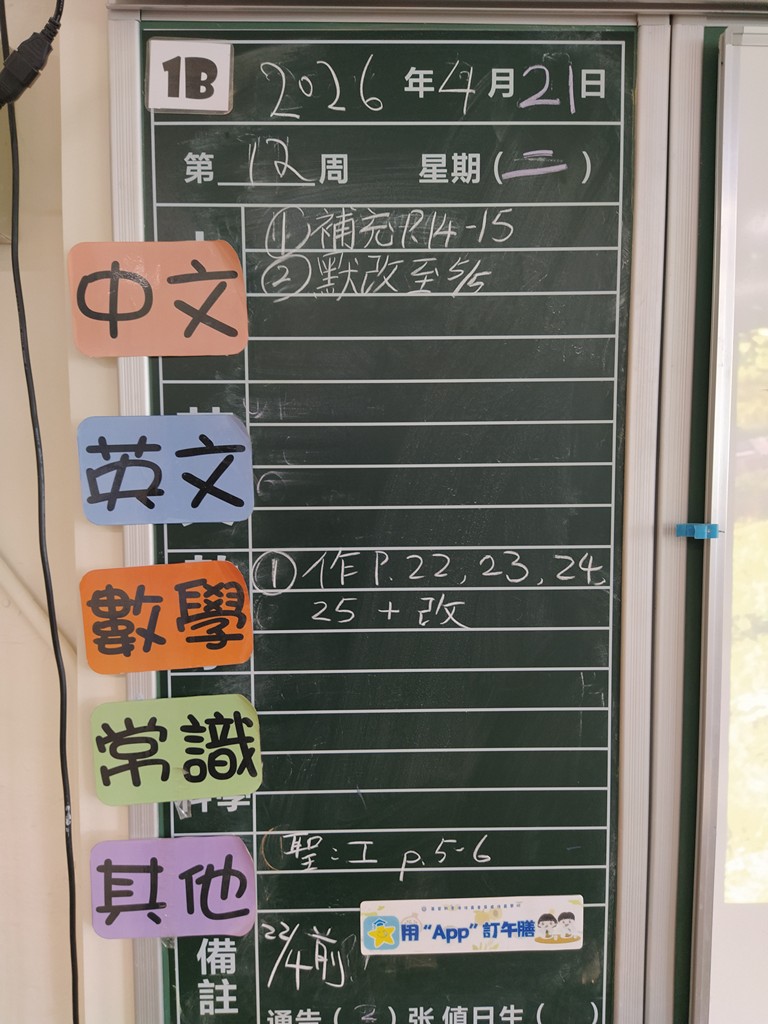 1B 2026年4月21日
第12周 星期(二)
中文
①補充P.14-15
②默改至5/5
英文
數學
①作P.22, 23, 24,
25 + 改
常識
科學
其他
聖:工 p.5-6
備註
22/4前
用“App”訂午膳
通告( )张 值日生( )